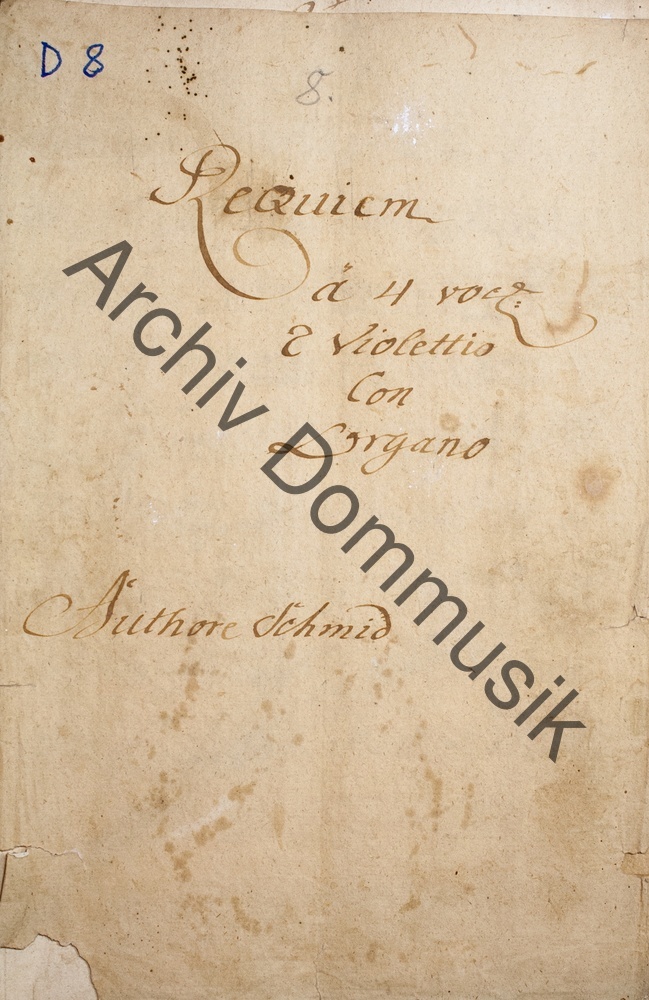 D 8
8.
Requiem
â 4 voc:
2 Violettis
Con
L'organo
Authore Schmid
Archiv Dommusik